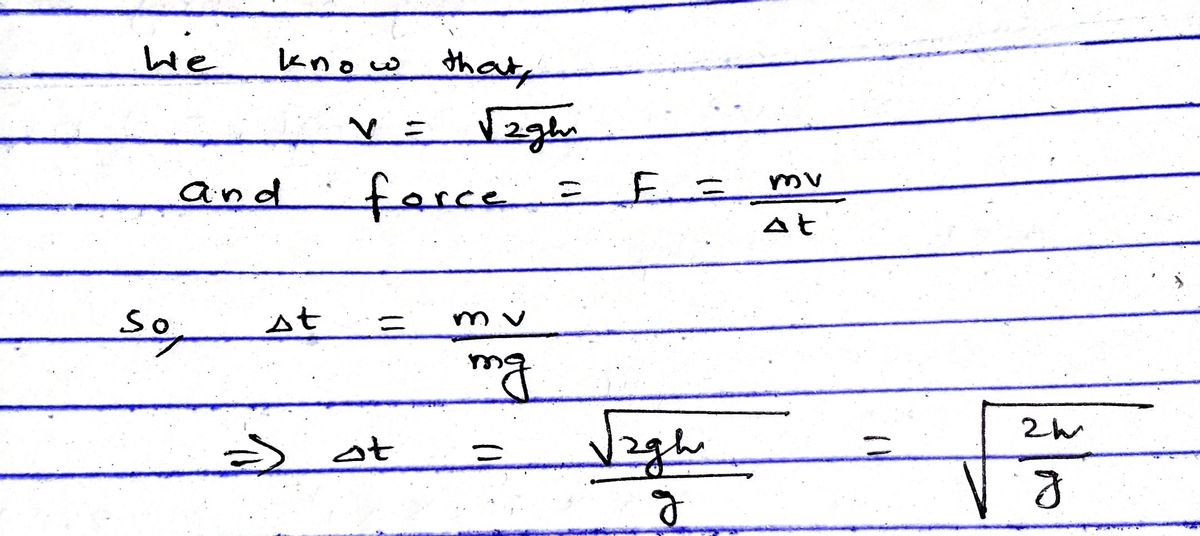 We know that,
v = √2gh
and force = F = mv/Δt
So, Δt = mv/mg
=> Δt = √2gh/g = √(2h/g)